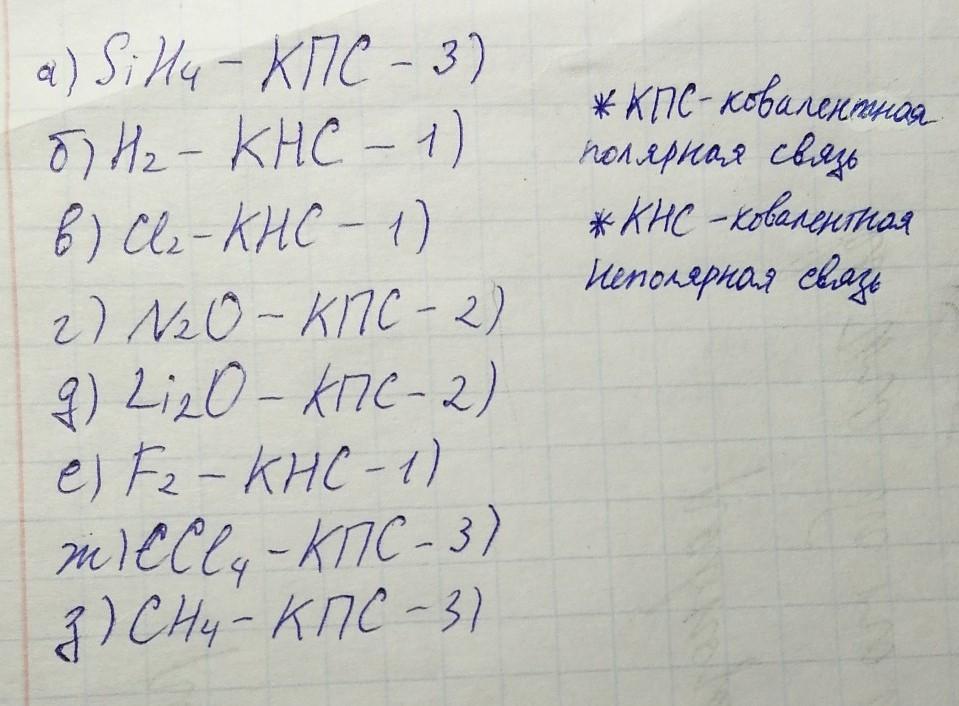 а) SiH4 – КПС – 3)
б) H2 – КНС – 1)
в) Cl2 – КНС – 1)
г) N2O – КПС – 2)
д) Li2O – КПС – 2)
е) F2 – КНС – 1)
ж) CCl4 – КПС – 3)
з) CH4 – КПС – 3)
* КПС – ковалентная
полярная связь
* КНС – ковалентная
неполярная связь